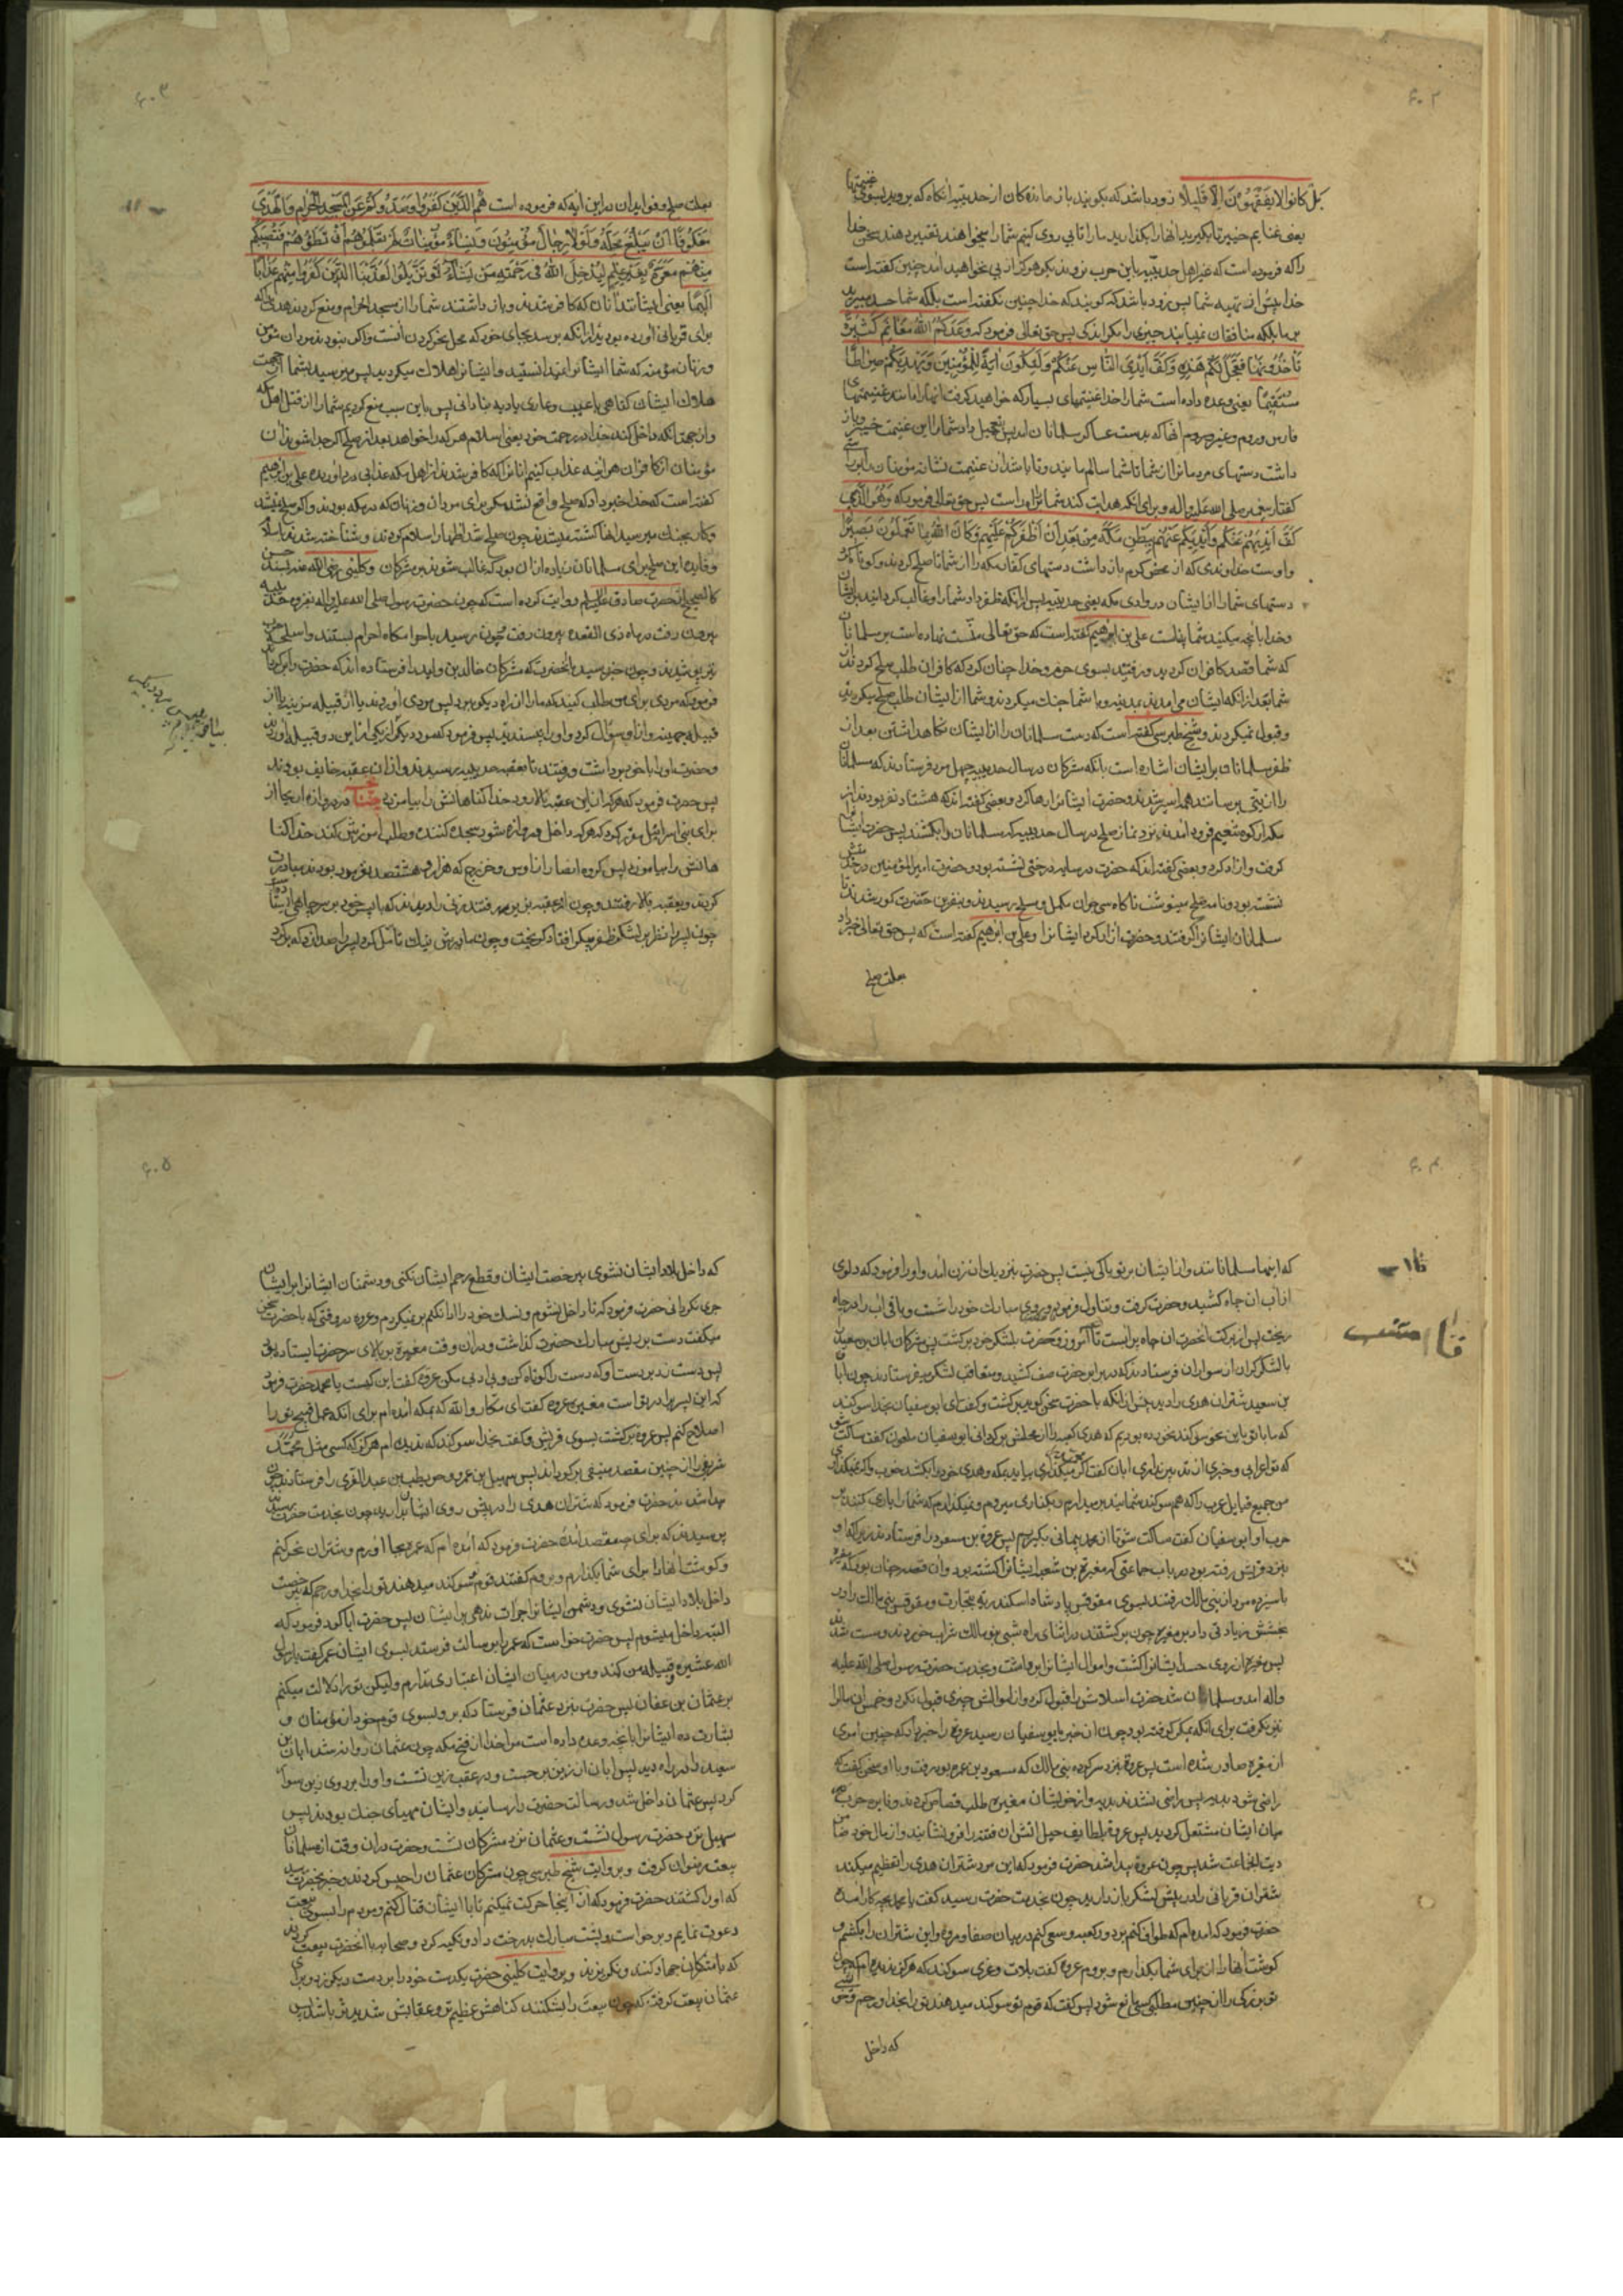 ۶۰۲
بَلْ كانُوا لا يَفْقَهُونَ اِلّا قَليلاً زود باشد که بگویند باز ماندگان از حدیبیه آنگاه که بروید بسوی غنیمتها
یعنی غنایم خیبر تا بگیرید آنها را بگذارید ما را تا پی روی کنیم شما را میخواهند تغییر دهند سخن خدا
را که فرموده است که غیر اهل حدیبیه باین حرب نروند بگو هرگز از پی نخواهید آمد چنین گفته است
خدا پیش از تهیه شما پس زود باشد که گویند که خدا چنین نگفته است بلکه شما حسد میبرید
بر ما بلکه منافقان نمییابند چیزی را مگر اندکی پس حق تعالی فرمود که وَعَدَكُمُ اللهُ مَغانِمَ كَثيرَةً
تَأخُذُونَها فَعَجَّلَ لَكُمْ هذِهِ وَكَفَّ اَيْدِيَ النّاسِ عَنْكُمْ وَلِتَكُونَ ايَةً لِلْمُؤْمِنينَ وَيَهْدِيَكُمْ صِراطًا
مُسْتَقيمًا یعنی وعده داده است شما را خدا غنیمتهای بسیار که خواهید گرفت آنها را مانند غنیمتهای
فارس و روم و غیر روم آنها که بدست عساکر مسلمانان آمد پس تعجیل داد شما را این غنیمت خیبر و باز
داشت دستهای مردمان را از شما تا شما سالم مانید و تا باشد آن غنیمت نشانه مؤمنان را بر راستی
گفتار پیغمبر صلی الله علیه و اله و برای آنکه هدایت کند شما را براه راست پس حق تعالی فرمود که وَهُوَ الَّذي
كَفَّ اَيْدِيَهُمْ عَنْكُمْ وَاَيْدِيَكُمْ عَنْهُمْ بِبَطْنِ مَكَّةَ مِنْ بَعْدِ اَنْ اَظْفَرَكُمْ عَلَيْهِمْ وَكانَ اللهُ بِما تَعْمَلُونَ بَصيرًا
و اوست خداوندی که از محض کرم باز داشت دستهای کفار مکه را از شما تا صلح کردند و کوتاه کرد
دستهای شما را از ایشان در وادی مکه یعنی حدیبیه پس از آنکه ظفر داد شما را و غالب گردانید بر ایشان
و خدا بآنچه میکنید شما بیناست علی بن ابراهیم گفته است که حق تعالی منّت نهاده است بر مسلمانان
که شما قصد کافران کردید و رفتید بسوی حرم و خدا چنان کرد که کافران طلب صلح کردند از
شما بعد از آنکه ایشان می آمدند بمدینه و با شما جنک میکردند و شما از ایشان طلب صلح میکردید
و قبول نمیکردند و شیخ طبرسی گفته است که دست مسلمانان را از ایشان نگاه داشتن بعد از
ظفر مسلمانان بر ایشان اشاره است بآنکه مشرکان در سال حدیبیه چهل مرد فرستادند که مسلمانان
را اذیتی برسانند همه اسیر شدند و حضرت ایشان را رها کرد و بعضی گفته اند که هشتاد نفر بودند از
مکه از کوه تنعیم فرود آمدند نزد نماز صبح در سال حدیبیه که مسلمانان را بکشند پس حضرت ایشان را
گرفت و آزاد کرد و بعضی گفته اند که حضرت در سایه درختی نشسته بود و حضرت امیر المؤمنین در خدمتش
نشسته بود و نامه صلح مینوشت ناگاه سی جوان مکمل و مسلح رسیدند و بنفرین حضرت کور شدند تا
مسلمانان ایشان را گرفتند و حضرت آزاد کرد ایشان را و علی بن ابراهیم گفته است که پس حق تعالی خبر داد
بعلت صلح
۶۰۳
بعلت صلح و فواید آن در این آیه که فرموده است هُمُ الَّذينَ كَفَرُوا وَصَدُّوكُمْ عَنِ الْمَسْجِدِ الْحَرامِ وَالْهَدْيَ
مَعْكُوفًا اَنْ يَبْلُغَ مَحِلَّهُ وَلَوْلا رِجالٌ مُؤْمِنُونَ وَنِساءٌ مُؤْمِناتٌ لَمْ تَعْلَمُوهُمْ اَنْ تَطَؤُهُمْ فَتُصيبَكُمْ
مِنْهُمْ مَعَرَّةٌ بِغَيْرِ عِلْمٍ لِيُدْخِلَ اللهُ في رَحْمَتِهِ مَنْ يَشاءُ لَوْ تَزَيَّلُوا لَعَذَّبْنَا الَّذينَ كَفَرُوا مِنْهُمْ عَذابًا
اَليمًا یعنی ایشانند آنان که کافر شدند و باز داشتند شما را از مسجد الحرام و منع کردند هدی را که
برای قربانی آورده بودید از آنکه برسد بجای خود که محل نحر کردن آنست و اگر نبودند مردان مؤمن
و زنان مؤمنه که شما ایشان را نمیدانستید و ایشان را هلاک میکردید پس میرسید بشما از جهت
هلاک ایشان گناهی یا عیب و عاری یا دیه بنادانی پس باین سبب منع کردیم شما را از قتل اهل مکه
و از جهة آنکه داخل کند خدا در رحمت خود یعنی اسلام هر که را خواهد بعد از صلح اگر جدا شوند آن
مؤمنان از کافران هر آینه عذاب کنیم آنان را که کافر شدند از اهل مکه عذابی درد آورنده علی بن ابراهیم
گفته است که خدا خبر داد که صلح واقع نشد مگر برای مردان و زنان که در مکه بودند و اگر صلح نمیشد
و کار بجنک میرسید آنها کشته میشدند چون صلح شد اظهار اسلام کردند و شناخته شدند
و فایده این صلح برای مسلمانان زیاده از آن بود که غالب شوند بر مشرکان و کلینی رضی الله عنه بسند حسن
کالصحیح از حضرت صادق علیه السلام روایت کرده است که چون حضرت رسول صلی الله علیه و اله بغزوه حدیبیه
بیرون رفت در ماه ذی القعده بیرون رفت و چون رسید باحرامگاه احرام بستند و اسلحه حرب
نیز پوشیدند و چون خبر رسید بآنحضرت که مشرکان خالد بن ولید را فرستاده اند که حضرت را برگرداند
فرمود که مردی برای من طلب کنید که ما را از راه دیگر ببرد پس مردی آوردند یا از قبیله مزینه یا از
قبیله جهینه و از او سؤال کرد و او را نپسندید پس فرمود که مرد دیگر از یکی از این دو قبیله آوردند
و حضرت او را با خود برداشت و رفتند تا بعقبه حدیبیه رسیدند و از آن عقبه خایف بودند
پس حضرت فرمود که هر که از این عقبه بالا رود خدا گناهانش را بیامرزد چنانچه در دروازه اریحا از
برای بنی اسرائیل مقرر کرد که هر که داخل دروازه شود سجده کننده و طلب آمرزش کند خدا گنا
هانش را بیامرزد پس گروه انصار از اوس و خزرج که هزار و هشتصد نفر بودند مبادرت
کردند و بعقبه بالا رفتند و چون از عقبه بزیر رفتند زنی را دیدند که با پسر خود بر سر چاهی ایستاده
چون پسر را نظر بر لشکر ظفر پیکر افتاد گریخت و چون مادرش نیک تأمّل کرد پسر را صدا زد که برگرد
۶۰۴
که اینها مسلمانانند و از ایشان بر تو باکی نیست پس حضرت بنزدیک آن زن آمد و او را فرمود که دلوی
از آب آن چاه کشید و حضرت گرفت و تناول فرمود و روی مبارک خود را شست و باقی آب را در چاه
ریخت پس از برکت آنحضرت آن چاه پر آبست تا امروز و حضرت بلشکر خود برگشت پس مشرکان ابان بن سعید را
با لشکر گران از سواران فرستادند که در برابر حضرت صف کشید و متعاقب لشکر میفرستادند چون ابان
بن سعید شتران هدی را دید پیش از آنکه با حضرت سخن گوید برگشت و گفت ای ابو سفیان بخدا سوگند
که ما با تو باین نحو سوگند نخورده بودیم که هدی کعبه را از محلش برگردانی ابو سفیان ملعون گفت ساکت شو
که تو اعرابی و خبری از تدبیر نداری ابان گفت اگر میگذاری بیاید بمکه و هدی خود را بکشد خوب و اگر نمیگذاری
من جمیع قبایل عرب را که هم سوگند شمایند برمیدارم و بکناری میروم و نمیگذارم که شما را یاری کنند بر
حرب او ابو سفیان گفت ساکت شو تا از محمد پیمانی بگیرم پس عروة بن مسعود را فرستادند زیرا که او
بنزد قریش رفته بود در باب جماعتی که مغیرة بن شعبه ایشان را کشته بود و آن قصه چنان بود که مغیره
با سیزده مرد از بنی مالک رفتند بسوی مقوقس پادشاه اسکندریه بتجارت و مقوقس بنی مالک را در
بخشش زیادتی داد بر مغیره چون برگشتند در اثنای راه شبی بنو مالک شراب خوردند و مست شدند
پس مغیره از روی حسد ایشان را کشت و اموال ایشان را برداشت و بخدمت حضرت رسول صلی الله علیه
و اله آمد و مسلمان شد حضرت اسلامش را قبول کرد و از اموالش چیزی قبول نکرد و خمس آن مال را
نیز نگرفت برای آنکه بمکر گرفته بود چون آن خبر بابو سفیان رسید عروة را خبر داد که چنین امری
از مغیره صادر شده است پس عروة بنزد سرکرده بنی مالک که مسعود بن عمرو بود رفت و با او سخن گفت که
راضی شود بدیه پس راضی نشدند بدیه و از خویشان مغیره طلب قصاص کردند و نایره حرب در
میان ایشان مشتعل گردید پس عروة بلطایف حیل آتش آن فتنه را فرو نشانید و از مال خود ضامن
دیت آنجماعت شد پس چون عروة پیدا شد حضرت فرمود که این مرد شتران هدی را تعظیم میکند
شتران قربانی را در پیش لشکر باز دارید چون بخدمت حضرت رسید گفت یا محمد بچه کار آمده
حضرت فرمود که آمده ام که طواف کنم بر دور کعبه و سعی کنم در میان صفا و مروه و این شتران را بکشم و
گوشت آنها را از برای شما بگذارم و بروم عروة گفت بلات و عزی سوگند که هرگز ندیده ام که چون
تو بزرگی را از چنین مطلبی کسی مانع شود پس گفت که قوم تو سوگند میدهند تو را بخدا و رحم و خویشی
که داخل
۶۰۵
که داخل بلاد ایشان نشوی بی رخصت ایشان و قطع رحم ایشان نکنی و دشمنان ایشان را بر ایشان
جری نگردانی حضرت فرمود که تا داخل نشوم و نسک خود را ادا نکنم برنمیگردم و عروه در وقتی که با حضرت سخن
میگفت دست بر ریش مبارک حضرت گذاشت و در آن وقت مغیره بر بالای سر حضرت ایستاده بود
پس دست زد بر دست او که دست را کوتاه کن و بی ادبی مکن عروه گفت این کیست یا محمد حضرت فرمود
که این پسر برادر تو است مغیره عروه گفت ای مکار والله که بمکه آمده ام برای آنکه عمل قبیح تو را
اصلاح کنم پس عروة برگشت بسوی قریش و گفت بخدا سوگند که ندیده ام هرگز که کسی مثل محمّد
شریفی را از چنین مقصد منیفی برگرداند پس سهیل بن عمرو و حویطب بن عبد العزی را فرستادند چون
پیدا شدند حضرت فرمود که شتران هدی را در پیش روی ایشان بدارید چون بخدمت حضرت رسیدند
پرسیدند که برای چه مقصد آمدهٔ حضرت فرمود که آمده ام که عمره بجا آورم و شتران نحر کنم
و گوشت آنها را برای شما بگذارم و بروم گفتند قوم تو سوگند میدهند تو را بخدا و رحم که بی رخصت
داخل بلاد ایشان نشوی و دشمن ایشان را جرات ندهی بر ایشان پس حضرت ابا کرد فرمود که
البته داخل میشوم پس حضرت خواست که عمر را برسالت فرستد بسوی ایشان عمر گفت یا رسول
الله عشیره و قبیله من کمند و من در میان ایشان اعتباری ندارم ولیکن تو را دلالت میکنم
بر عثمان بن عفان پس حضرت بنزد عثمان فرستاد که برو بسوی قوم خود از مؤمنان و
بشارت ده ایشان را بآنچه وعده داده است مرا خدا از فتح مکه چون عثمان روانه شد ابان بن
سعید را در راه دید پس ابان از زین برجست و در عقب زین نشست و او را بر روی زین سوار
کرد پس عثمان داخل شد و رسالت حضرت را رسانید و ایشان مهیای جنک بودند پس
سهیل نزد حضرت رسول نشست و عثمان نزد مشرکان نشست و حضرت در آن وقت از مسلمانان
بیعت رضوان گرفت و بروایت شیخ طبرسی چون مشرکان عثمان را حبس کردند و خبر بحضرت رسید
که او را کشتند حضرت فرمود که از اینجا حرکت نمیکنم تا با ایشان قتال کنم و مردم را بسوی بیعت
دعوت نمایم و برخواست و پشت مبارک بدرخت داد و تکیه کرد و صحابه با آنحضرت بیعت کردند
که با مشرکان جهاد کنند و نگریزند و بروایت کلینی حضرت یکدست خود را بر دست دیگر زد و برای
عثمان بیعت گرفت که چون بیعت را بشکنند گناهش عظیم تر و عقابش شدید تر باشد پس